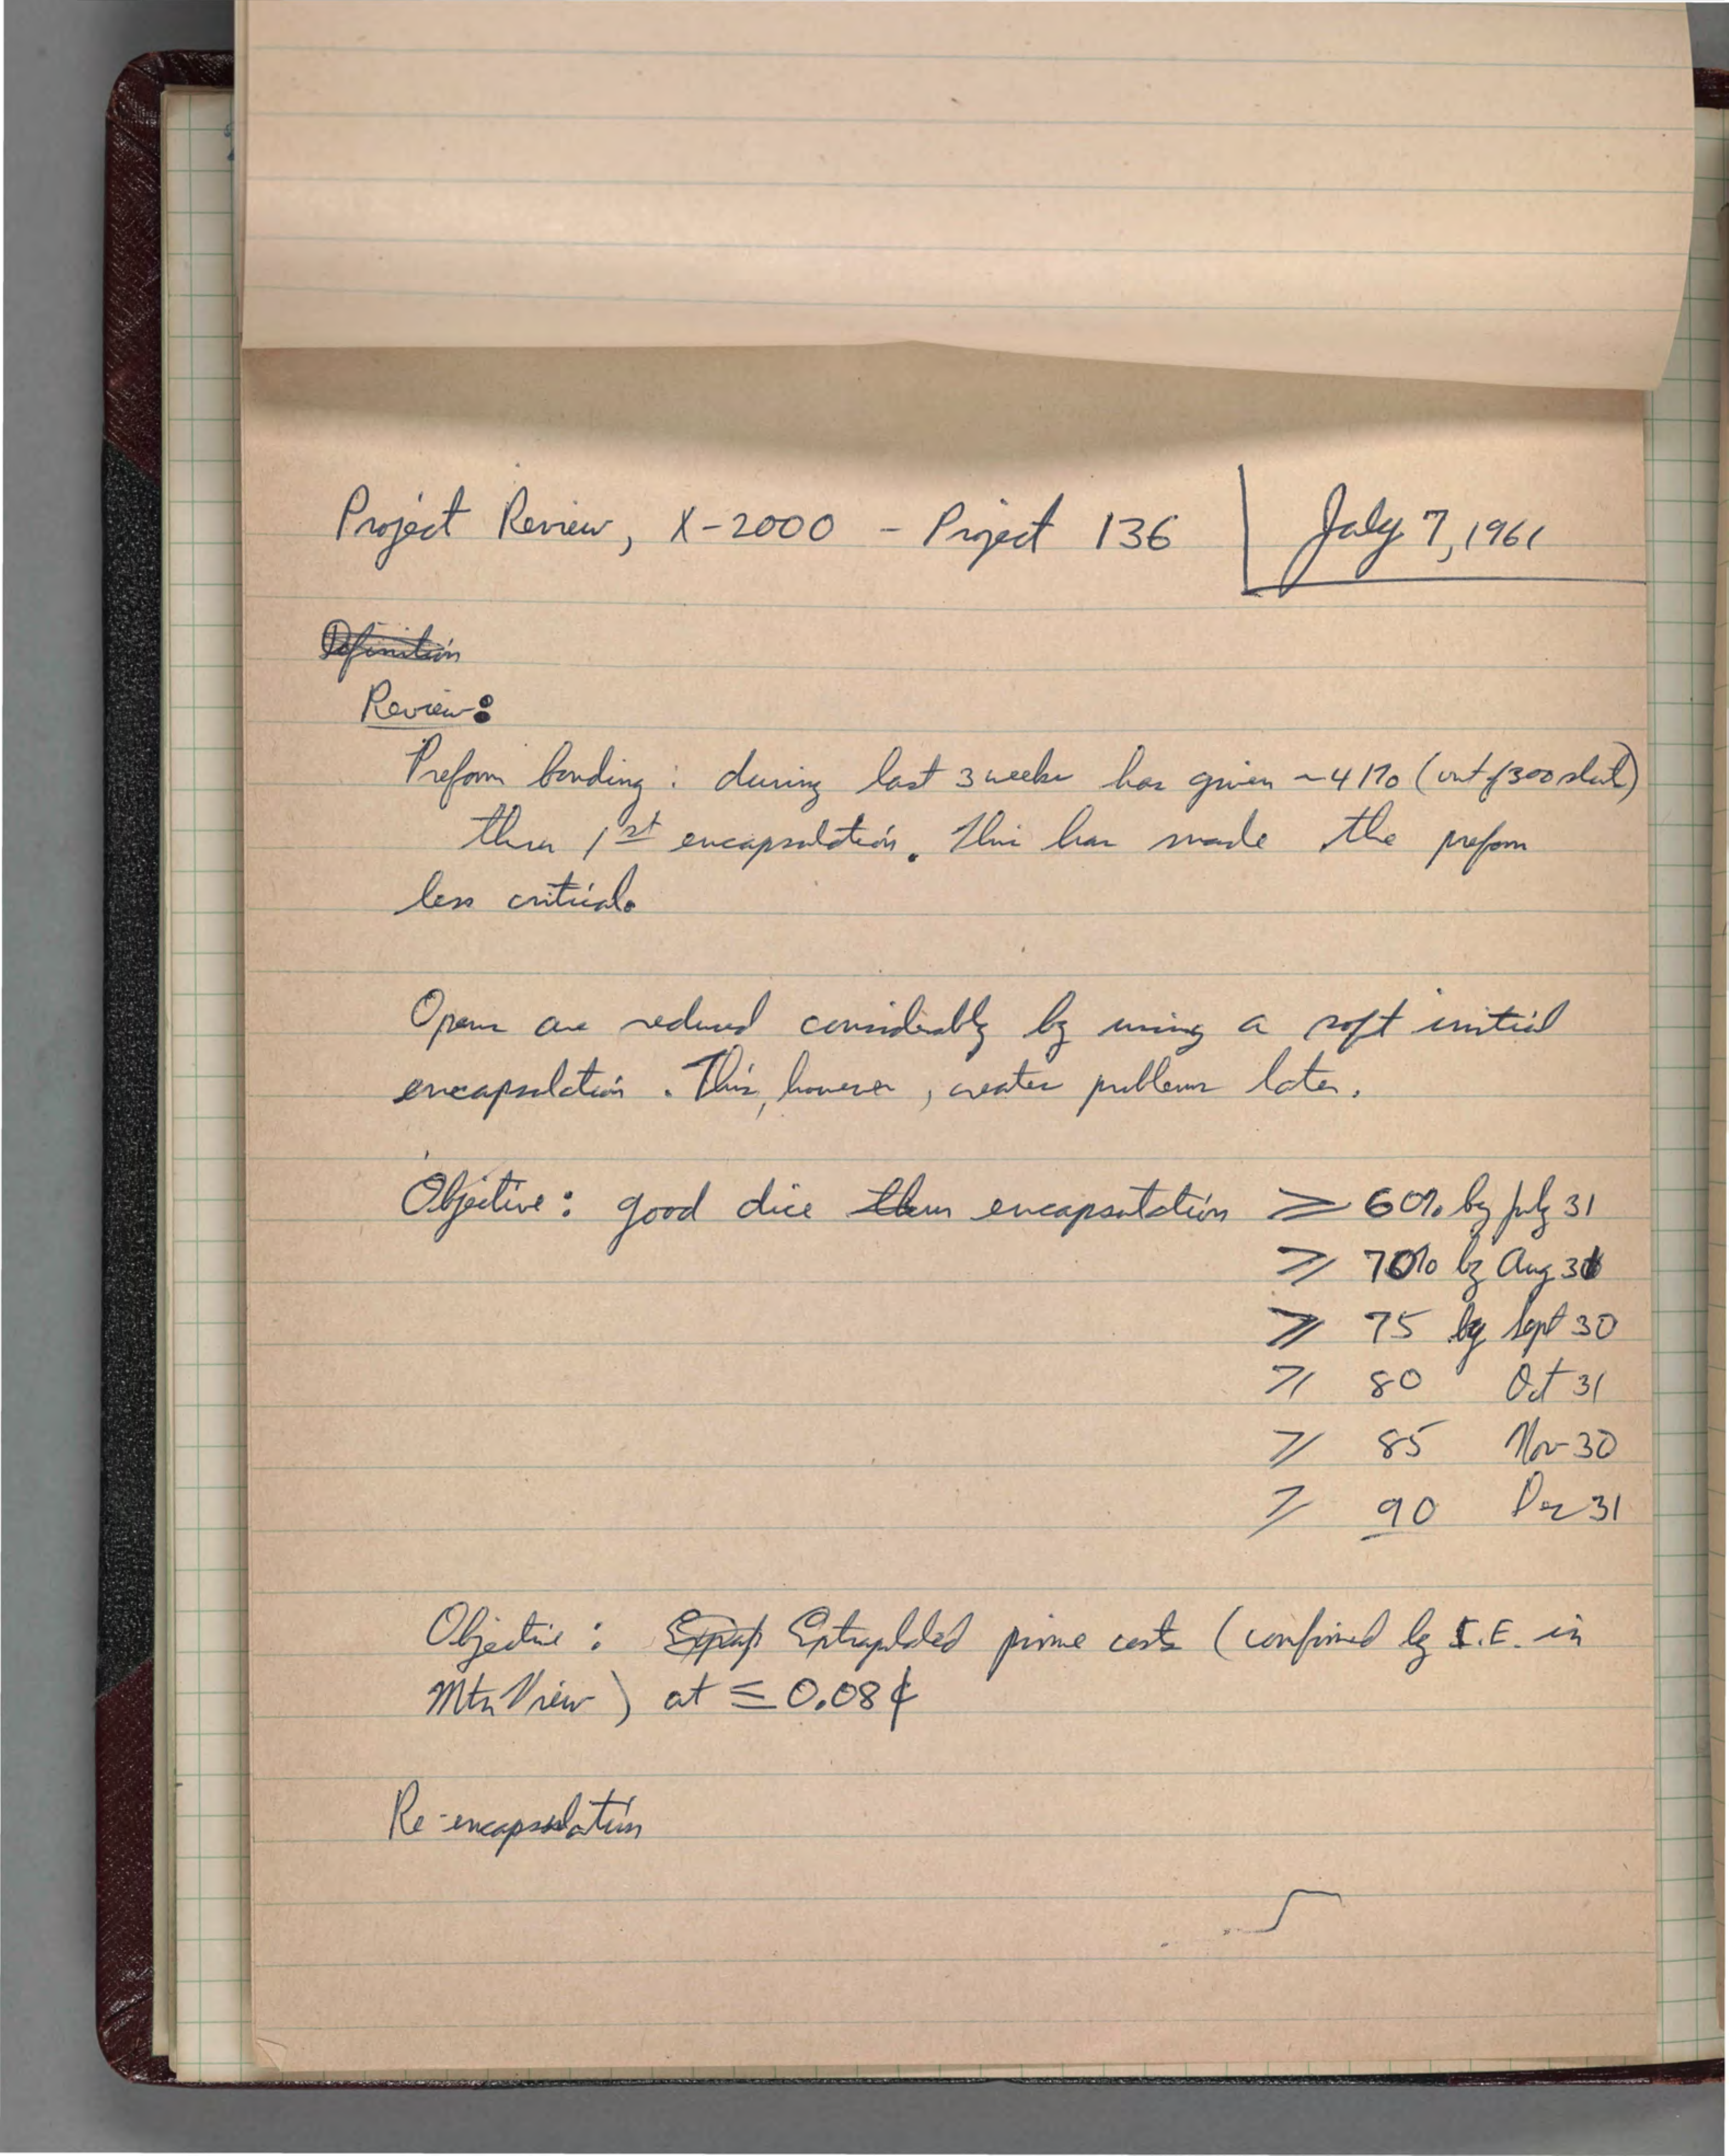 Project Review, X-2000 - Project 136 | July 7, 1961
Definition
Review:
Preform bonding: during last 3 weeks has given ~41% (out of 300 start)
thru 1st encapsulation. This has made the preform
less critical.
Opens are reduced considerably by using a soft initial
encapsulation. This, however, creates problems later.
Objective: good dice thru encapsulation ≥ 60% by July 31
≥ 70% by Aug 31
≥ 75 by Sept 30
≥ 80 Oct 31
≥ 85 Nov 30
≥ 90 Dec 31
Objective: Extrapolated prime costs (confirmed by I.E. in
Mtn View) at ≤ 0.08¢
Re-encapsulation